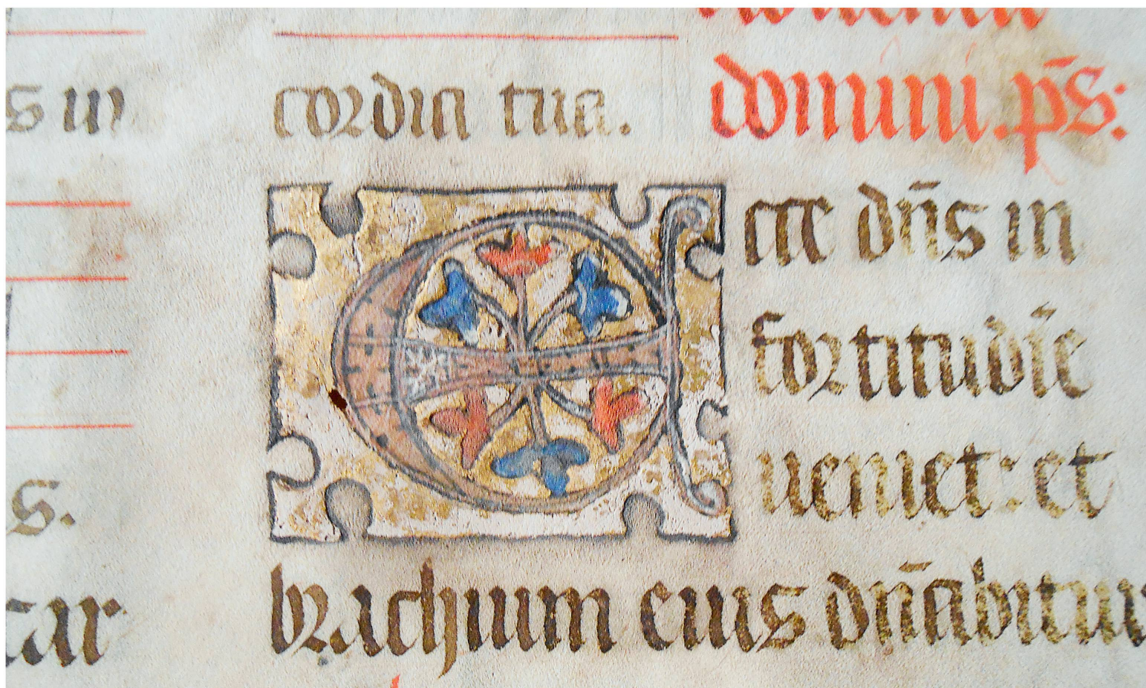 s in
s.
ar
cordia tua.
domini. p̄s:
Ecce dn̄s in
fortitudīe
ueniet: et
brachium eius dn̄abitu